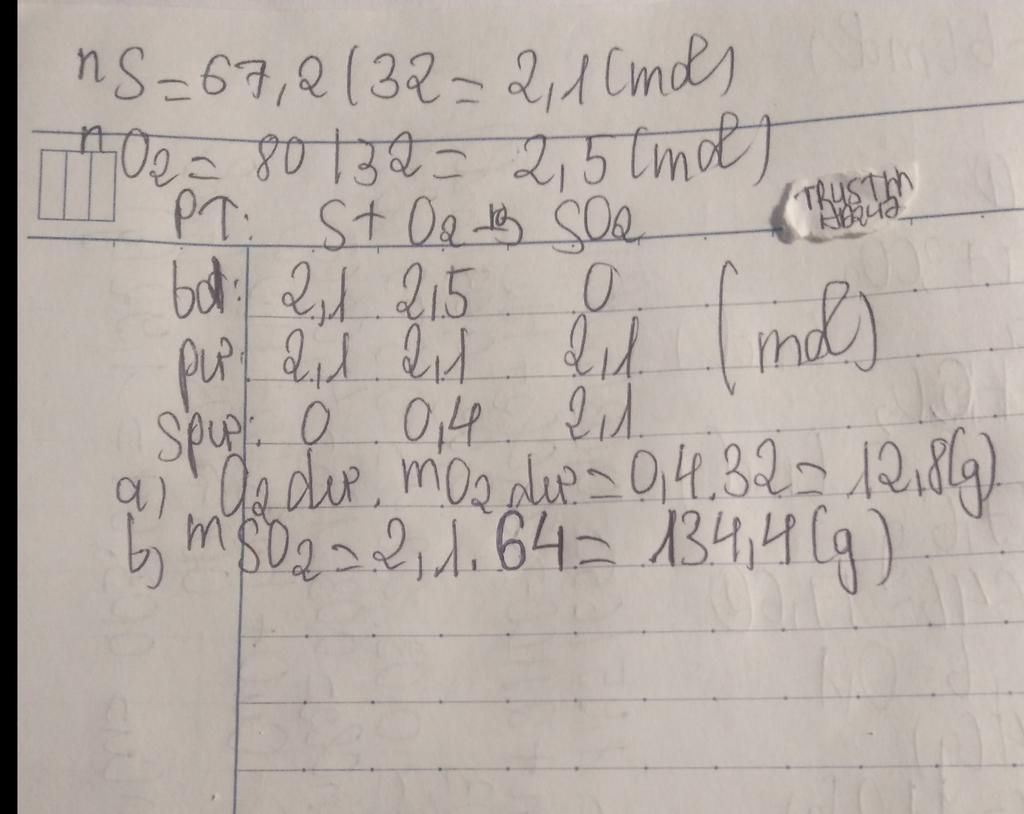 nS = 67,2 / 32 = 2,1 (mol)
nO2 = 80 / 32 = 2,5 (mol)
PT: S + O2 → SO2
bđ: 2,1 2,5 0
pư: 2,1 2,1 2,1 (mol)
spư: 0 0,4 2,1
a) O2 dư. mO2 dư = 0,4.32 = 12,8(g)
b) mSO2 = 2,1.64 = 134,4 (g)